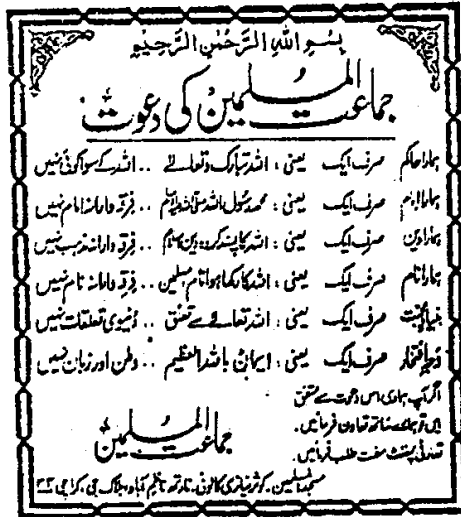 بسم اللہ الرحمٰن الرحیم
جماعت المسلمین کی دعوت
ہمارا حاکم صرف ایک یعنی: اللہ تبارک و تعالےٰ .. اللہ کے سوا کوئی نہیں
ہمارا امام صرف ایک یعنی: محمد رسول اللہ صلی اللہ علیہ وسلم .. فرقہ وارانہ امام نہیں
ہمارا دین صرف ایک یعنی: اللہ کا پسند کردہ دین اسلام .. فرقہ وارانہ مذہب نہیں
ہمارا نام صرف ایک یعنی: اللہ کا رکھا ہوا نام مسلمین .. فرقہ وارانہ نام نہیں
بنیاد محبت صرف ایک یعنی: اللہ تعالےٰ سے تعلق .. دنیوی تعلقات نہیں
وجہ افتخار صرف ایک یعنی: ایمان باللہ العظیم .. وطن اور زبان نہیں
اگر آپ ہماری اس دعوت سے متفق
ہیں تو ہمارے ساتھ تعاون فرمائیں.
تعارفی پمفلٹ مفت طلب فرمائیں.
جماعت المسلمین
مسجد المسلمین. کوثر نیازی کالونی. نارتھ ناظم آباد، بلاک جی، کراچی ۳۳